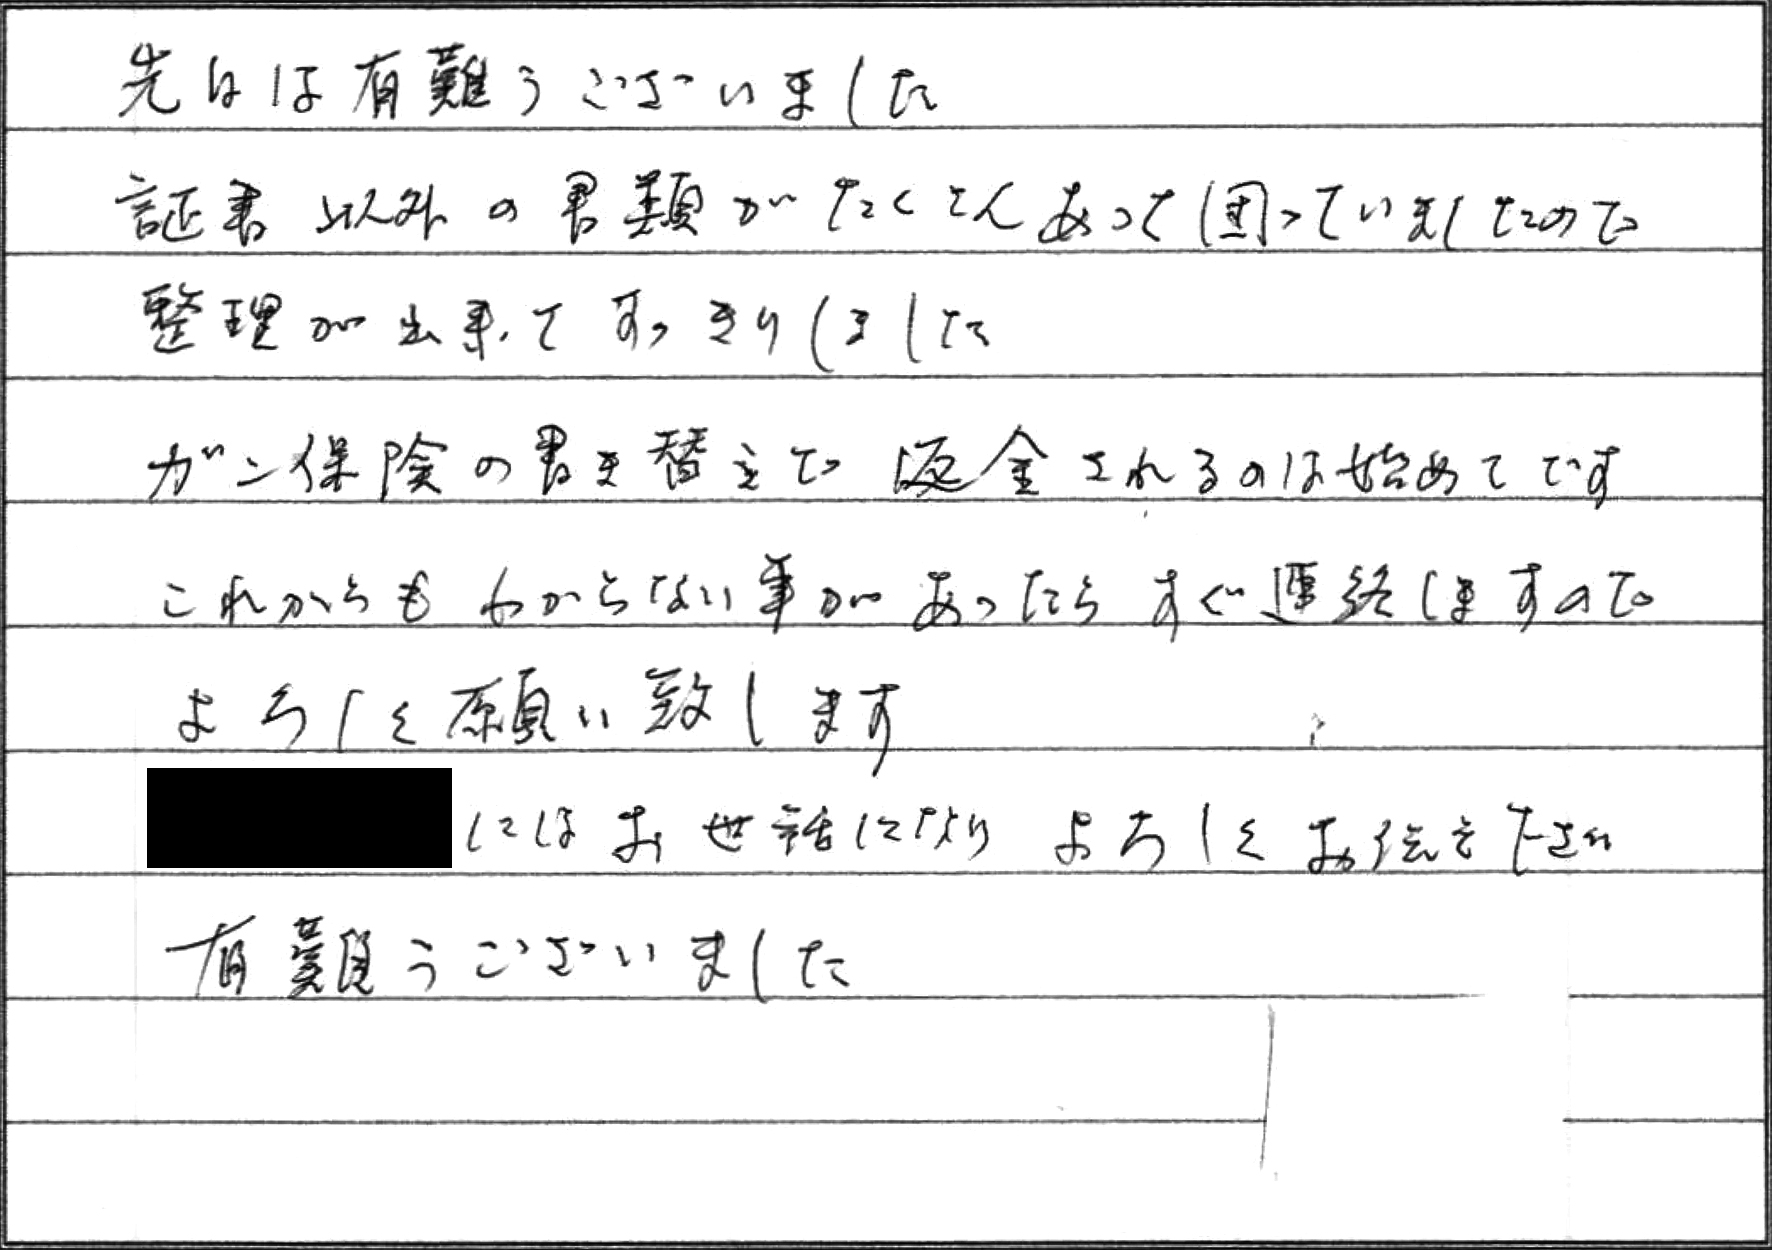 先日は有難うございました
証書以外の書類がたくさんあって困っていましたので
整理が出来てすっきりしました
ガン保険の書き替えで返金されるのは始めてです
これからもわからない事があったらすぐ連絡しますので
よろしく願い致します
にはお世話になりよろしくお伝え下さい
有難うございました